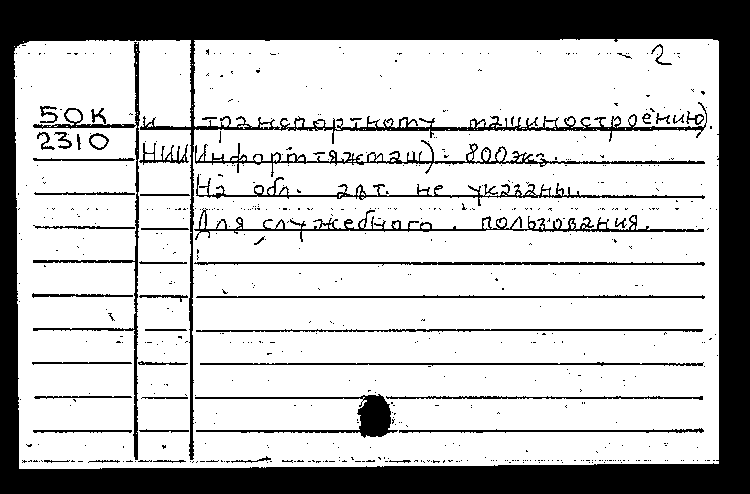 2
50К и транспортному машиностроению).
2310 НИИИнформтяжмаш). 800экз.
На обл. авт. не указаны.
Для служебного. пользования.